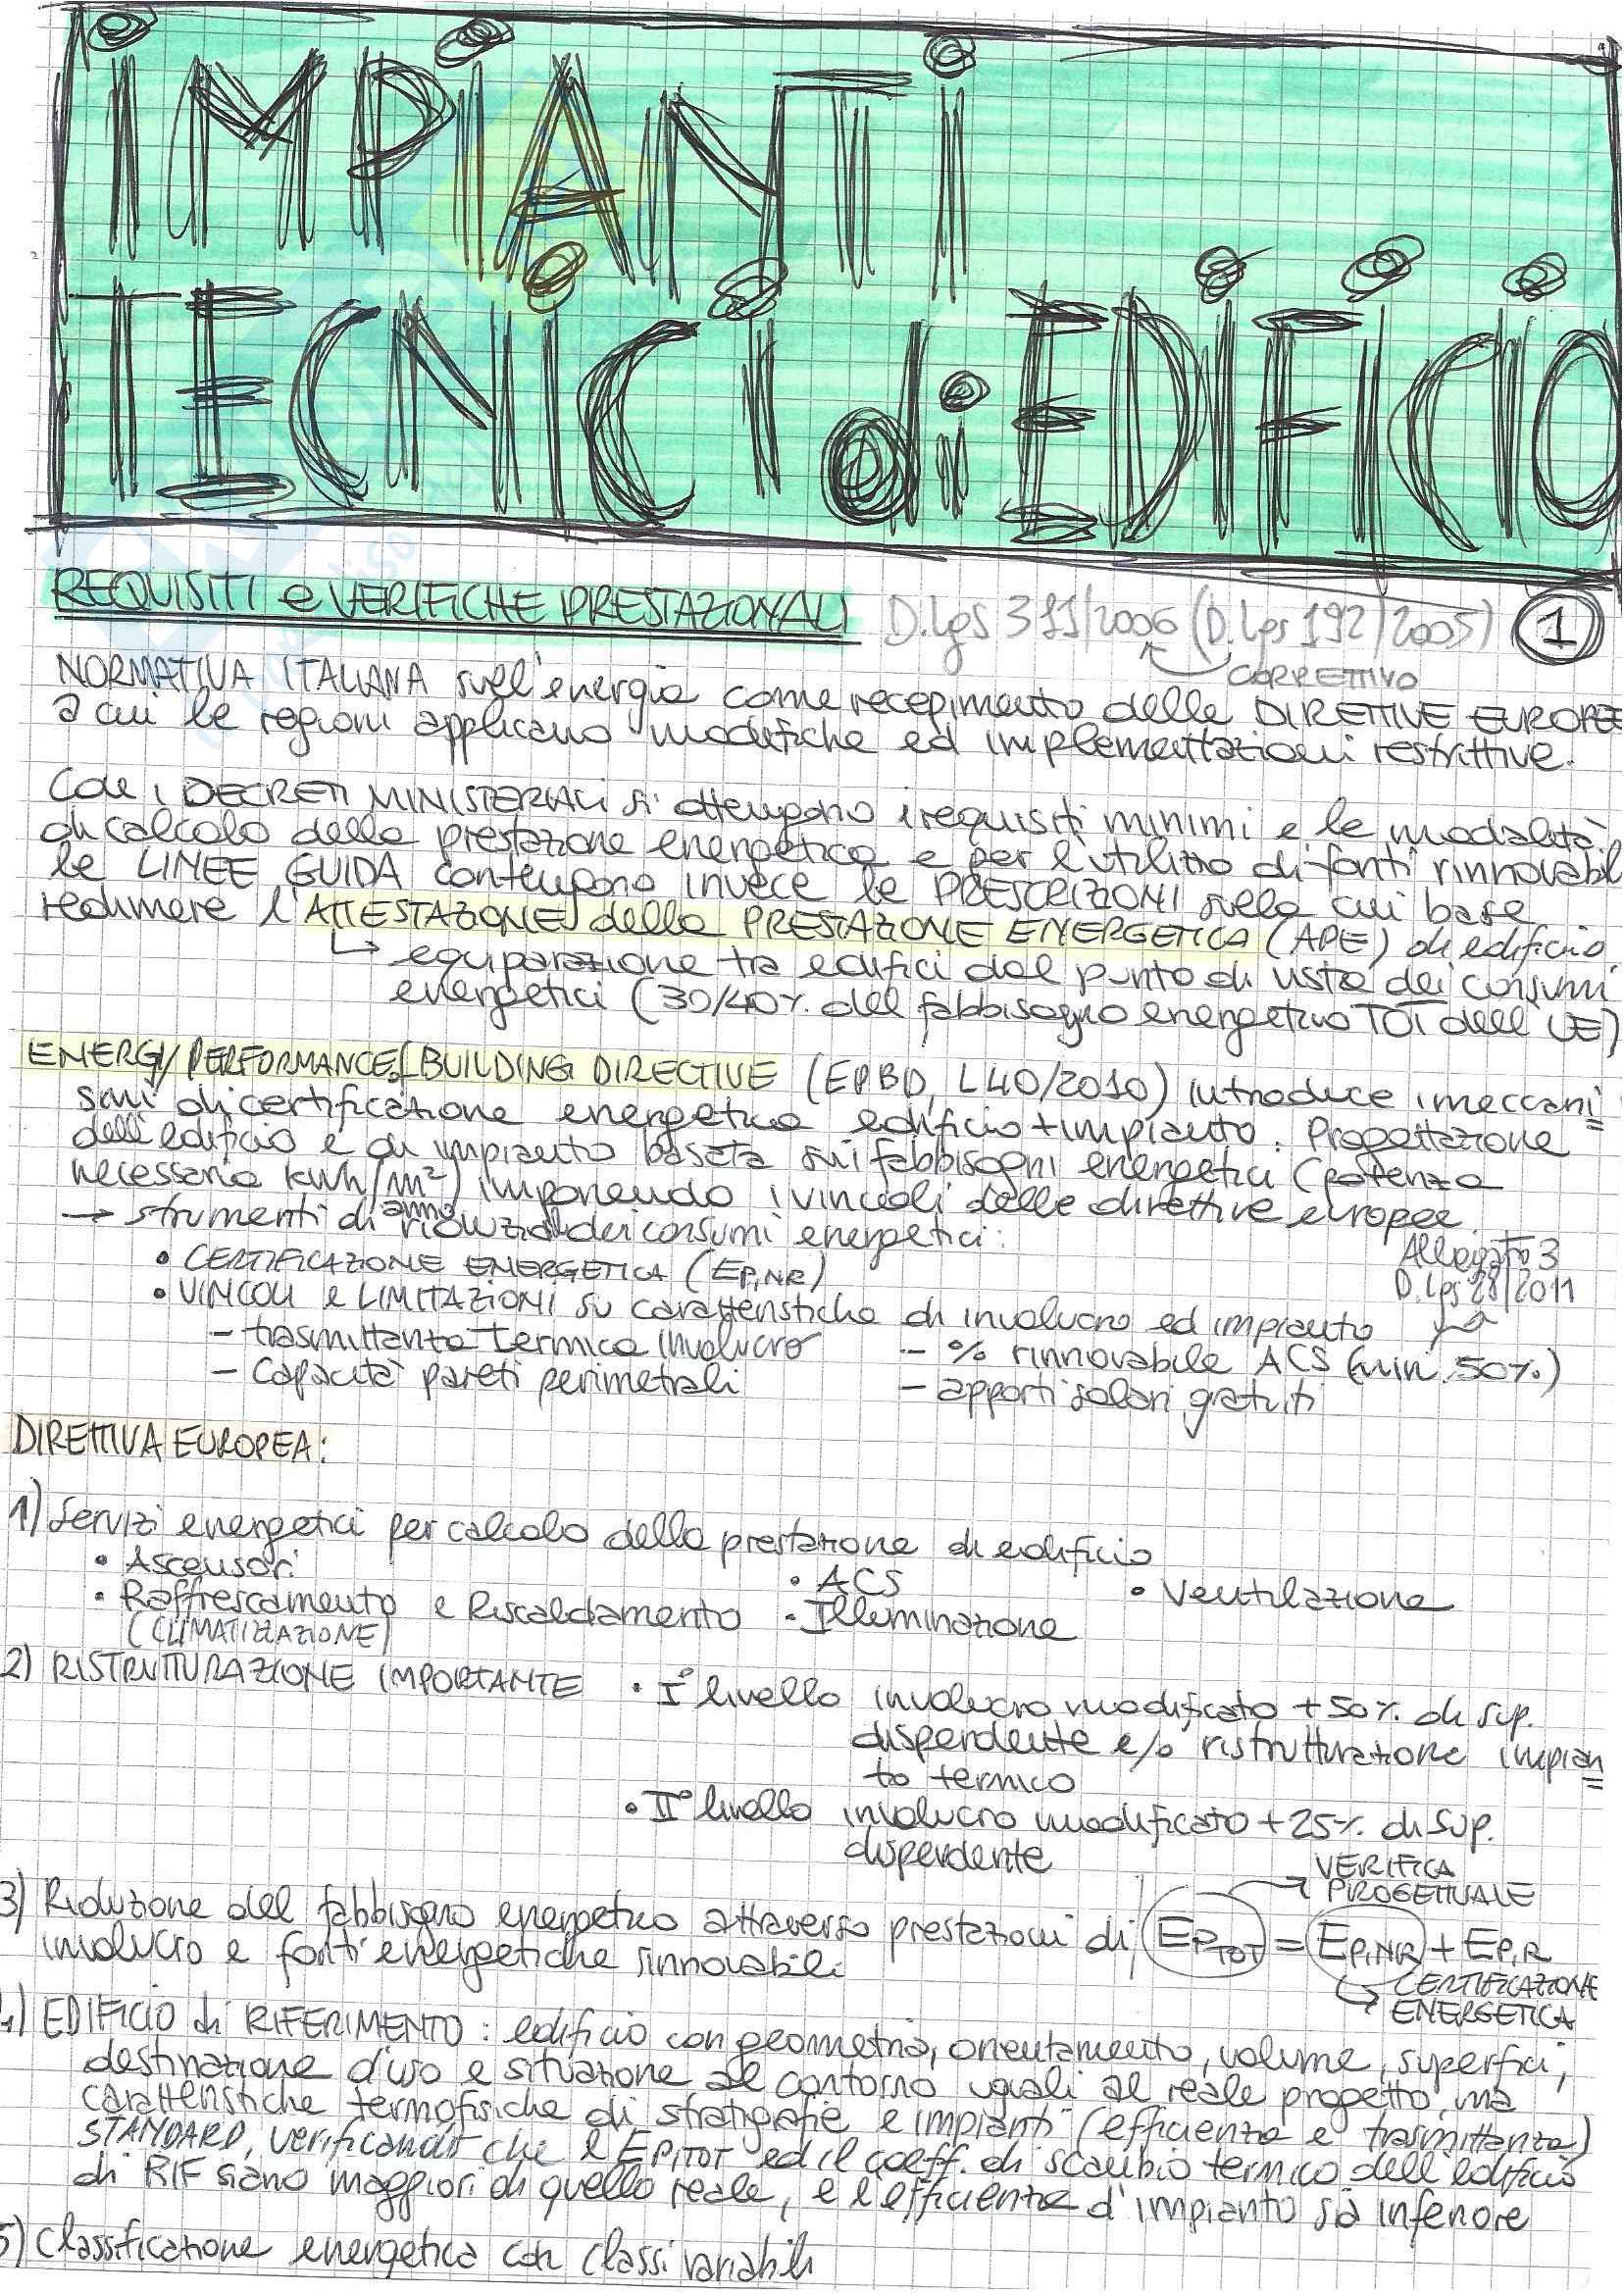 iMPiANTi
TECNiCi di EDiFiCiO
REQUISITI e VERIFICHE PRESTAZIONALI D.lgs 311/2006 (D.lgs 192/2005) 1
CORRETTIVO
NORMATIVA ITALIANA sull'energia come recepimento delle DIRETTIVE EUROPEE
a cui le regioni applicano modifiche ed implementazioni restrittive.
Con i DECRETI MINISTERIALI si ottengono i requisiti minimi e le modalità
di calcolo della prestazione energetica e per l'utilizzo di fonti rinnovabili
le LINEE GUIDA contengono invece le PRESCRIZIONI sulla cui base
redimere l'ATTESTAZIONE della PRESTAZIONE ENERGETICA (APE) di edificio.
↳ equiparazione tra edifici dal punto di vista dei consumi
energetici (30/40% del fabbisogno energetivo TOT dell'UE)
ENERGY PERFORMANCE of BUILDING DIRECTIVE (EPBD, L40/2010) introduce i meccani=
smi di certificazione energetica edificio+impianto. Progettazione
dell'edificio e di impianto basata sui fabbisogni energetici (potenza
necessaria kWh/m²) imponendo i vincoli delle direttive europee.
anno
→ strumenti di riduzione dei consumi energetici:
• CERTIFICAZIONE ENERGETICA (EP,NR)
Allegato 3
D.lgs 28/2011
• VINCOLI e LIMITAZIONI su caratteristiche di involucro ed impianto
- trasmittanza termica involucro - % rinnovabile ACS (min. 50%)
- capacità pareti perimetrali - apporti solari gratuiti
DIRETTIVA EUROPEA:
1) Servizi energetici per calcolo della prestazione di edificio
• Ascensori • ACS • Ventilazione
• Raffrescamento e Riscaldamento • Illuminazione
(CLIMATIZZAZIONE)
2) RISTRUTTURAZIONE IMPORTANTE • I° livello involucro modificato +50% di sup.
disperdente e/o ristrutturazione impian=
to termico
• II° livello involucro modificato +25% di sup.
disperdente
VERIFICA
PROGETTUALE
3) Riduzione del fabbisogno energetico attraverso prestazioni di EPTOT = EP,NR + EP,R
involucro e fonti energetiche rinnovabili
↳ CERTIFICAZIONE
ENERGETICA
4) EDIFICIO di RIFERIMENTO: edificio con geometria, orientamento, volume, superfici,
destinazione d'uso e situazione al contorno uguali al reale progetto, ma
caratteristiche termofisiche di stratigrafie e impianti (efficienza e trasmittanza)
STANDARD, verificando che l'EP,TOT ed il coeff. di scambio termico dell'edificio
di RIF siano maggiori di quello reale, e l'efficienza d'impianto sia inferiore
5) Classificazione energetica con classi variabili